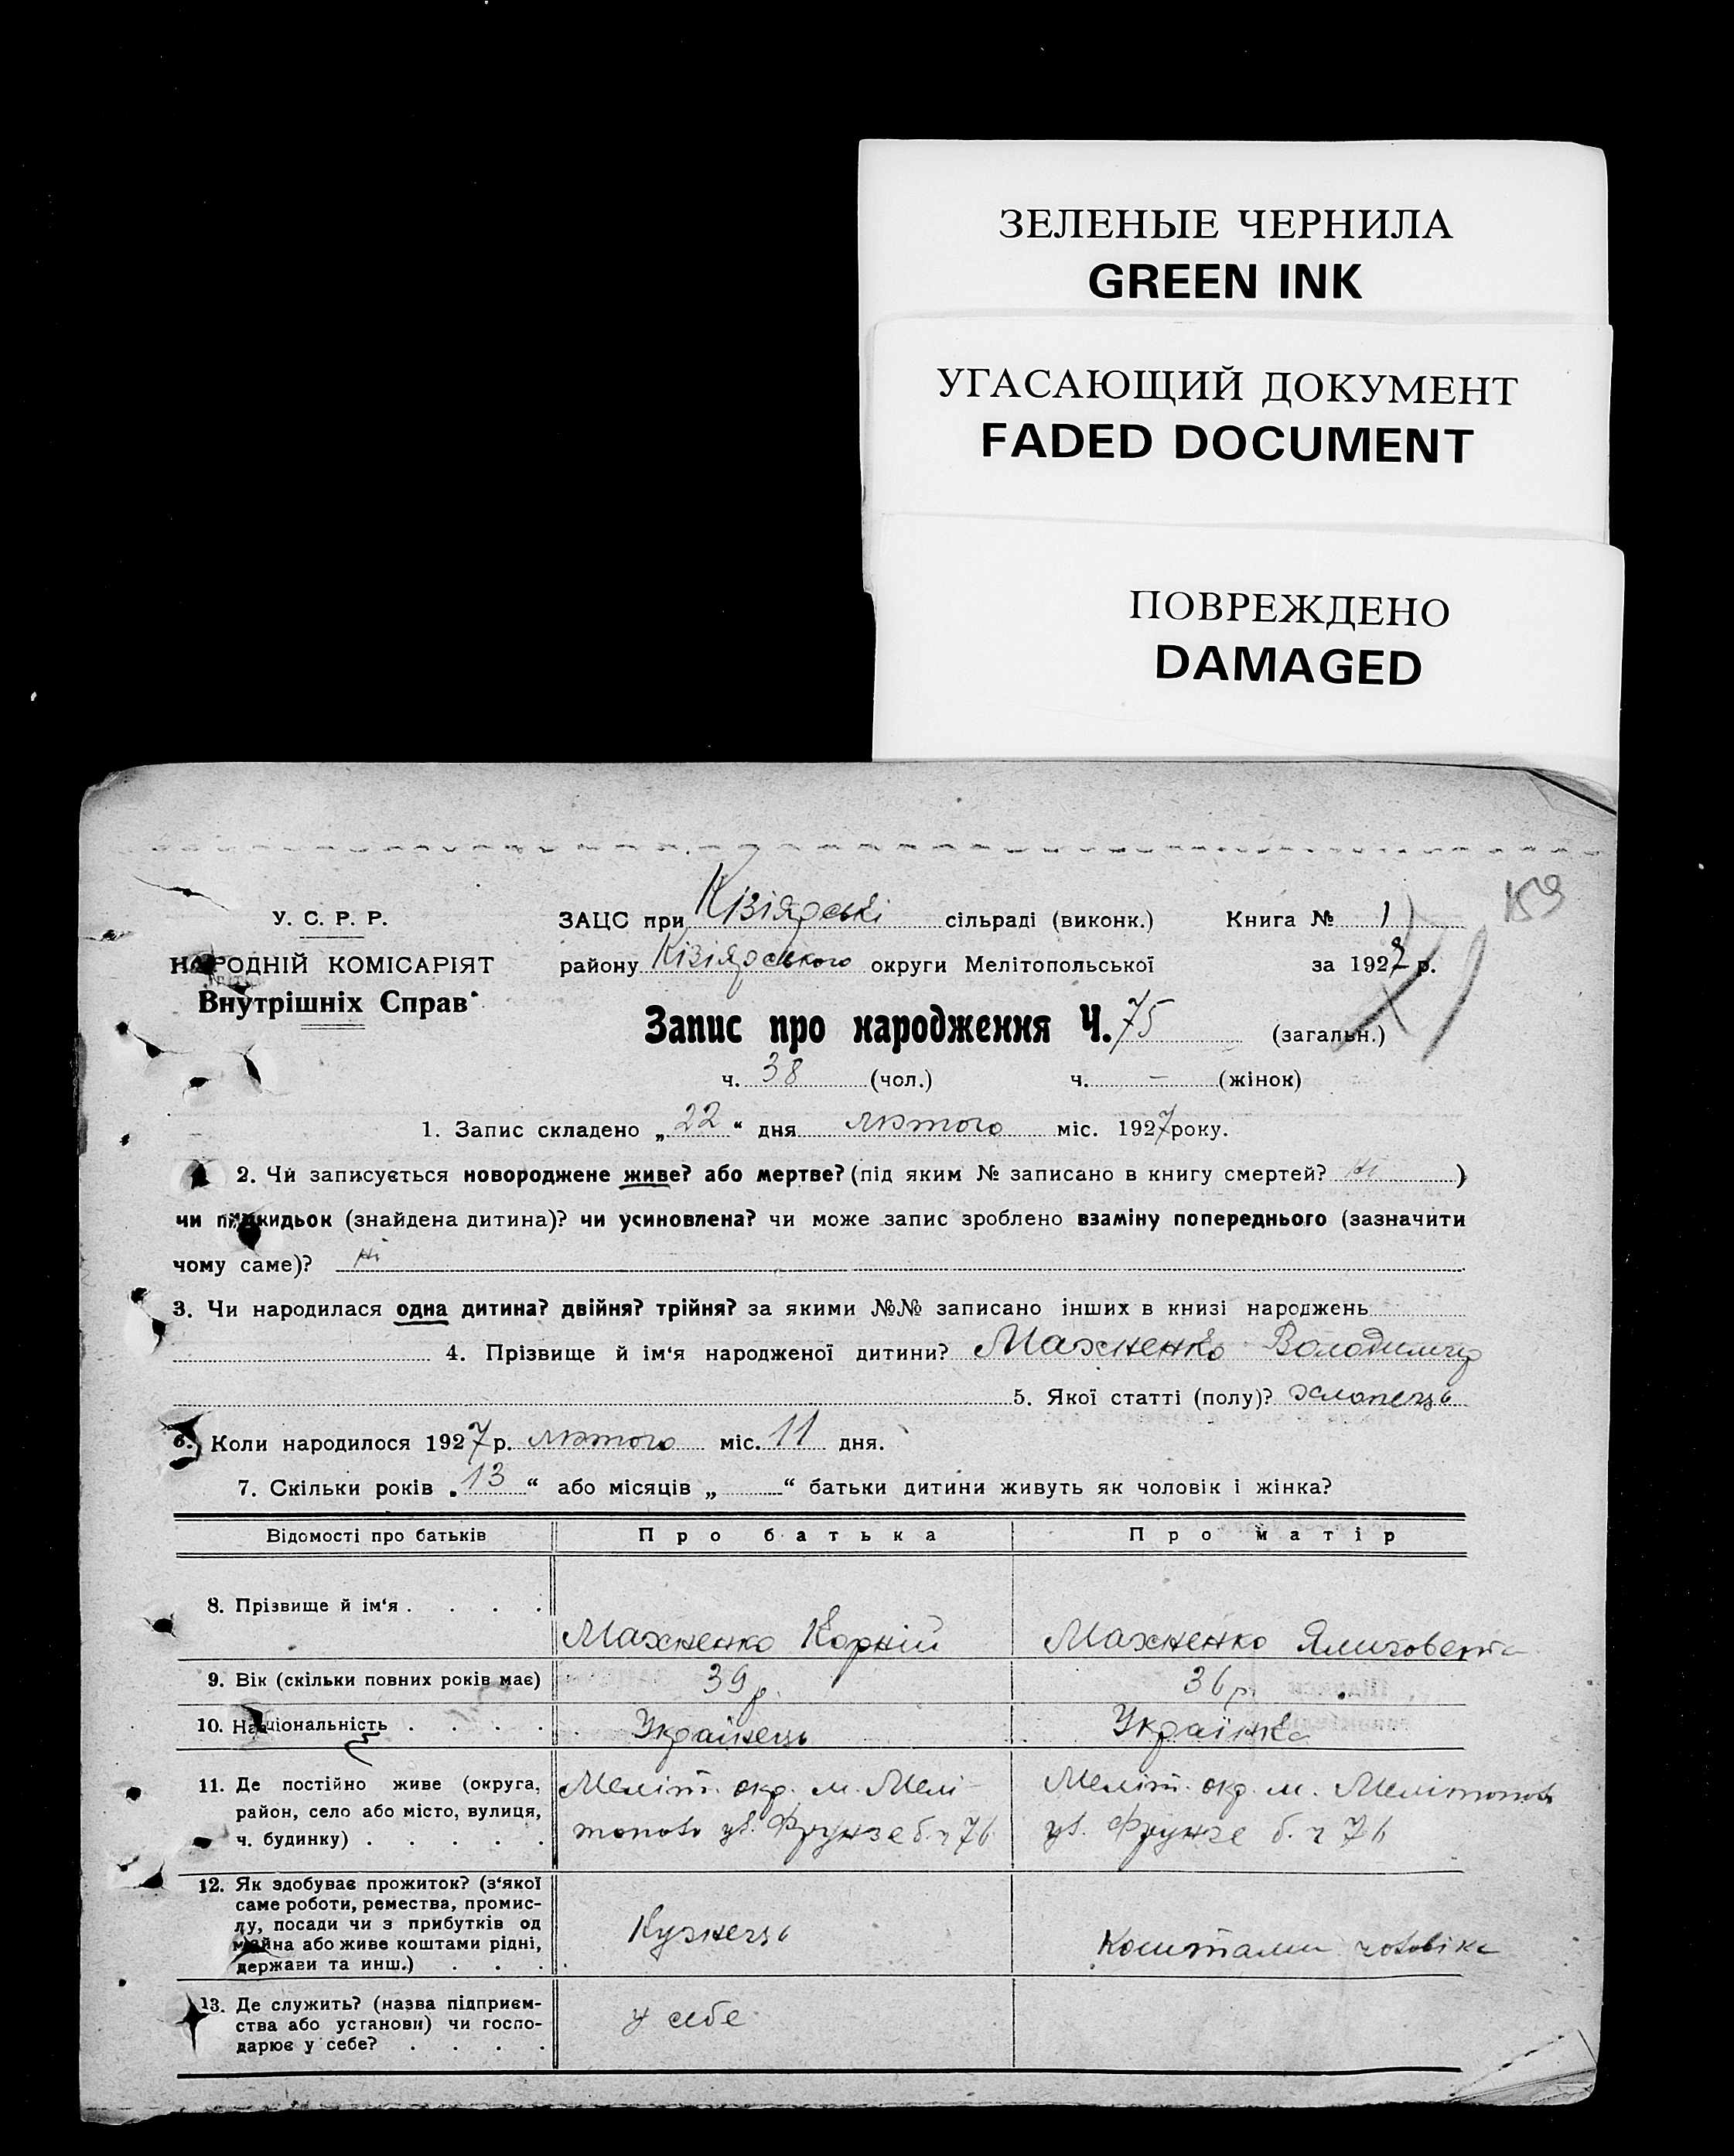 ЗЕЛЕНЫЕ ЧЕРНИЛА
GREEN INK
УГАСАЮЩИЙ ДОКУМЕНТ
FADED DOCUMENT
ПОВРЕЖДЕНО
DAMAGED
159
У. С. Р. Р.
ЗАЦС при Кізіярські сільраді (виконк.) Книга № 1
НАРОДНІЙ КОМІСАРІЯТ
району Кізіярського округи Мелітопольської за 1927 р.
Внутрішніх Справ
Запис про народження Ч. 75 (загальн.)
ч. 38 (чол.) ч. — (жінок)
1. Запис складено „22“ дня лютого міс. 1927 року.
2. Чи записується новороджене живе? або мертве? (під яким № записано в книгу смертей? ні )
чи підкидьок (знайдена дитина)? чи усиновлена? чи може запис зроблено взаміну попереднього (зазначити
чому саме)? ні
3. Чи народилася одна дитина? двійня? трійня? за якими №№ записано інших в книзі народжень
4. Прізвище й ім'я народженої дитини? Махненко Володимир
5. Якої статті (полу)? хлопець
6. Коли народилося 1927 р. лютого міс. 11 дня.
7. Скільки років „13“ або місяців „ “ батьки дитини живуть як чоловік і жінка?
Відомості про батьків Про батька Про матір
8. Прізвище й ім'я . . . .
Махненко Корній Махненко Ялизовета
9. Вік (скільки повних років має) 39 р. 36 р.
10. Національність . . . . Українець Українка
11. Де постійно живе (округа,
район, село або місто, вулиця,
ч. будинку) . . . . .
Меліт. окр. м. Мелі-
тополь ул. Фрунзе б. ч 76
Меліт. окр. м. Мелітополь
ул. Фрунзе б. ч 76
12. Як здобуває прожиток? (з'якої
саме роботи, ремества, промис-
лу, посади чи з прибутків од
майна або живе коштами рідні,
держави та инш.) . . .
Кузнець Коштами чоловіка
13. Де служить? (назва підприєм-
ства або установи) чи госпо-
дарює у себе? . . . .
у себе